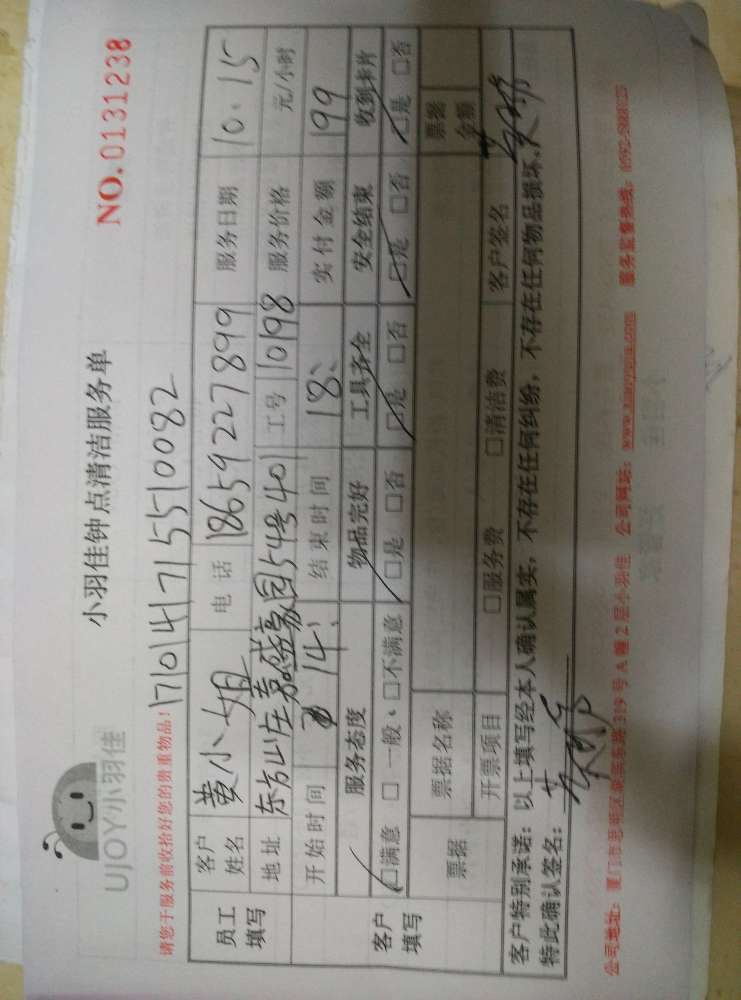 UJOY小羽佳
小羽佳钟点清洁服务单
NO.0131238
请您于服务前收拾好您的贵重物品！ 170141715510082
员工填写 客户姓名 黄小姐 电话 18659227899 服务日期 10.15
地址 东方山庄嘉盛豪园54号401 工号 10198 服务价格 元/小时
开始时间 14: 结束时间 18: 实付金额 199
客户填写 服务态度 物品完好 工具齐全 安全结束 收到卡片
☑满意 □一般 □不满意 ☑是 □否 ☑是 □否 ☑是 □否 ☑是 □否
票据 票据名称 票据金额
开票项目 □服务费 □清洁费 客户签名
客户特别承诺：以上填写经本人确认属实，不存在任何纠纷，不存在任何物品损坏，
特此确认签名：
公司地址：厦门市思明区 319号A幢2层小羽佳 公司网站： 服务监督热线：